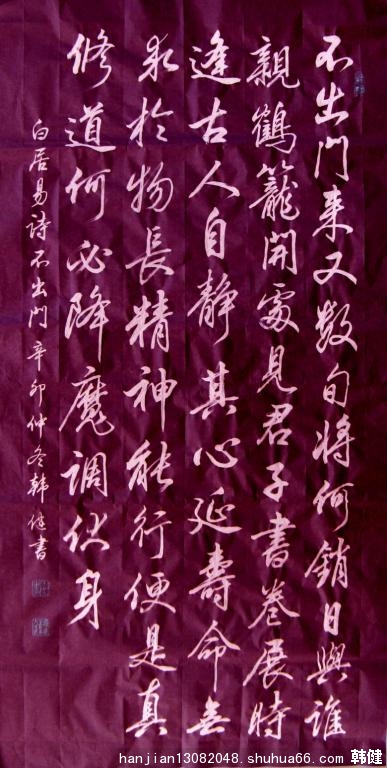 不出門来又数旬將何銷日與誰
親鶴籠開處見君子書卷展時
逢古人自靜其心延壽命無
求於物長精神能行便是真
修道何必降魔調伏身
白居易詩不出門辛卯仲冬韓健書
hanjian13082048.shuhua66.com 韩健